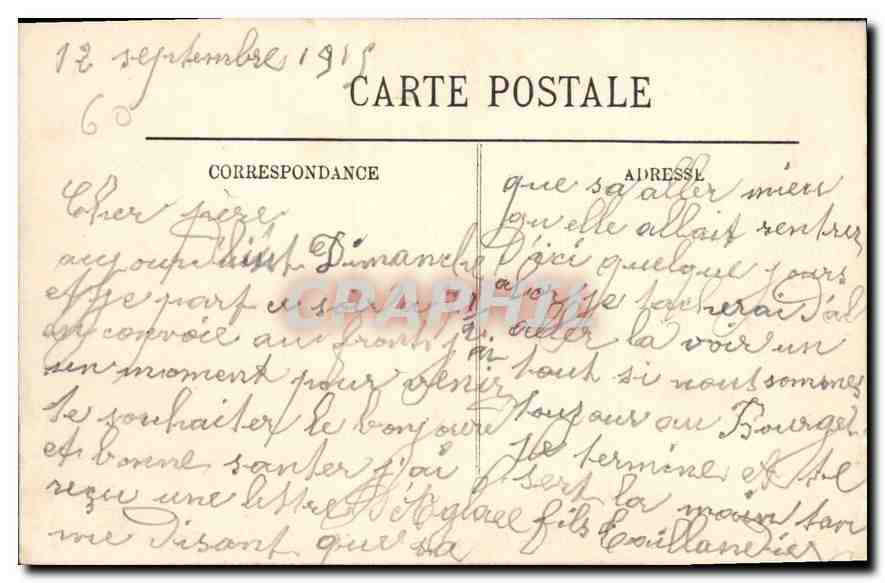 12 septembre 1915
60
CARTE POSTALE
CORRESPONDANCE
ADRESSE
Cher père
aujourd'huit Dimanche
et je part ce soir
en convoie au front j'ai
un moment pour venir
te souhaiter le bonjoure
et bonne santer j'ai
reçu une lettre d'Aglaee
me disant que sa
que sa aller mieu
qu'elle allait rentrer
D'ici quelque jours
alors je tacherai d'al
aller la voir un
tout si nout sommes
toujour au Bourget
je termine et te
sert la main ton
fils Taillandier
CARAPHIL